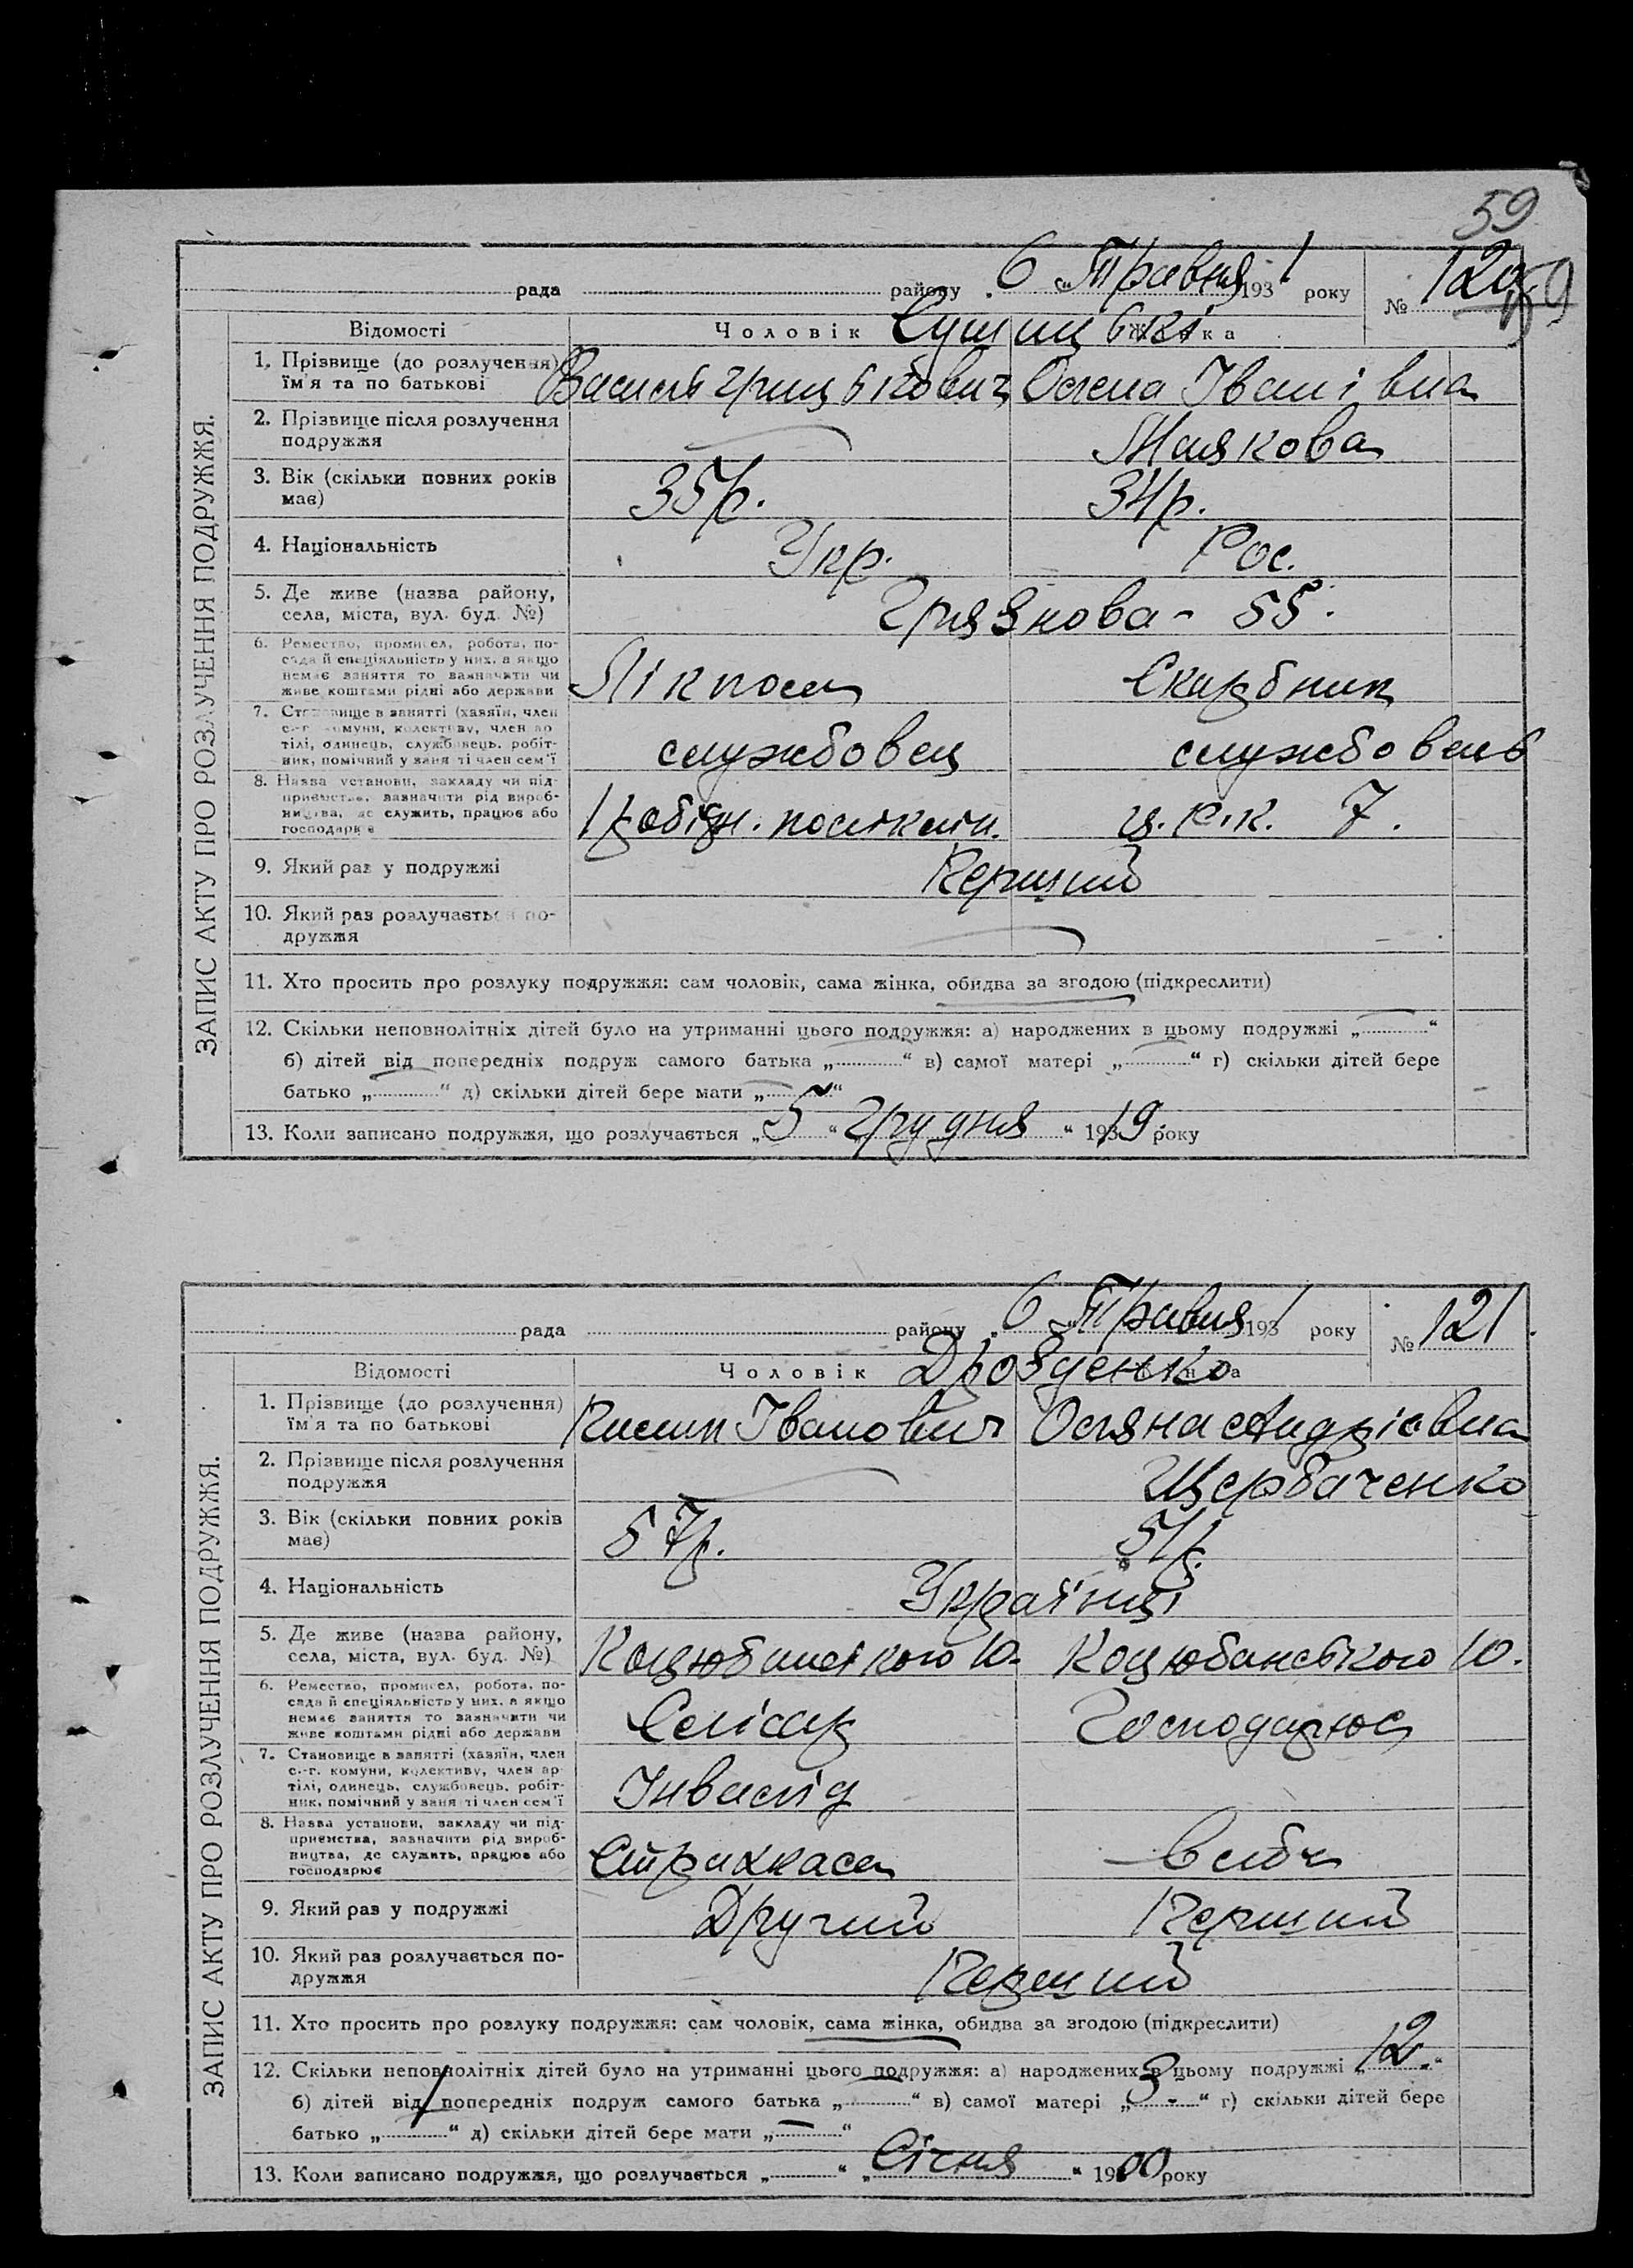 59
рада району „6 „ Травня 1931 року № 120
59
Відомості Чоловік Жінка
ЗАПИС АКТУ ПРО РОЗЛУЧЕННЯ ПОДРУЖЖЯ.
1. Прізвище (до розлучення)
ім'я та по батькові Василь Грицькович Олена Іванівна
2. Прізвище після розлучення
подружжя Маякова
3. Вік (скільки повних років
має) 35 р. 34 р.
4. Національність Укр. Рос.
5. Де живе (назва району,
села, міста, вул. буд. №) Грязнова - 55.
6. Ремество, промисел, робота, по-
сада й спеціяльність у них, а якщо
немає заняття то зазначити чи
живе коштами рідні або держави Лікпом Скарбник
7. Становище в занятті (хазяїн, член
с.-г. комуни, колективу, член ар-
тілі, одинець, службовець, робіт-
ник, помічний у занятті член сем'ї службовец службовець
8. Назва установи, закладу чи під-
приємства, зазначити рід вироб-
ництва, де служить, працює або
господарює 1 робітн. поліклін. ц. р. к. 7.
9. Який раз у подружжі Перший
10. Який раз розлучається по-
дружжя
11. Хто просить про розлуку подружжя: сам чоловік, сама жінка, обидва за згодою (підкреслити)
12. Скільки неповнолітніх дітей було на утриманні цього подружжя: а) народжених в цьому подружжі „ “
б) дітей від попередніх подруж самого батька „ “ в) самої матері „ “ г) скільки дітей бере
батько „ “ д) скільки дітей бере мати „ “
13. Коли записано подружжя, що розлучається „ 5 “ Грудня “ 1919 року
рада району „6 „ Травня 1931 року № 121.
Відомості Чоловік Дрозденко
ЗАПИС АКТУ ПРО РОЗЛУЧЕННЯ ПОДРУЖЖЯ.
1. Прізвище (до розлучення)
ім'я та по батькові Пилип Іванович Оляна Андріївна
2. Прізвище після розлучення
подружжя Щербаченко
3. Вік (скільки повних років
має) 57 р. 51 р.
4. Національність Українці
5. Де живе (назва району,
села, міста, вул. буд. №) Коцюбинського 10. Коцюбинського 10.
6. Ремество, промисел, робота, по-
сада й спеціяльність у них, а якщо
немає заняття то зазначити чи
живе коштами рідні або держави Слюсар Господарює
7. Становище в занятті (хазяїн, член
с.-г. комуни, колективу, член ар-
тілі, одинець, службовець, робіт-
ник, помічний у занятті член сем'ї Інвалід
8. Назва установи, закладу чи під-
приємства, зазначити рід вироб-
ництва, де служить, працює або
господарює Страхкаса в себе
9. Який раз у подружжі Другий Перший
10. Який раз розлучається по-
дружжя Перший
11. Хто просить про розлуку подружжя: сам чоловік, сама жінка, обидва за згодою (підкреслити)
12. Скільки неповнолітніх дітей було на утриманні цього подружжя: а) народжених в цьому подружжі „ 12. “
б) дітей від попередніх подруж самого батька „ “ в) самої матері „ 3. “ г) скільки дітей бере
батько „ “ д) скільки дітей бере мати „ “
13. Коли записано подружжя, що розлучається „ “ „ Січня “ 1900 року